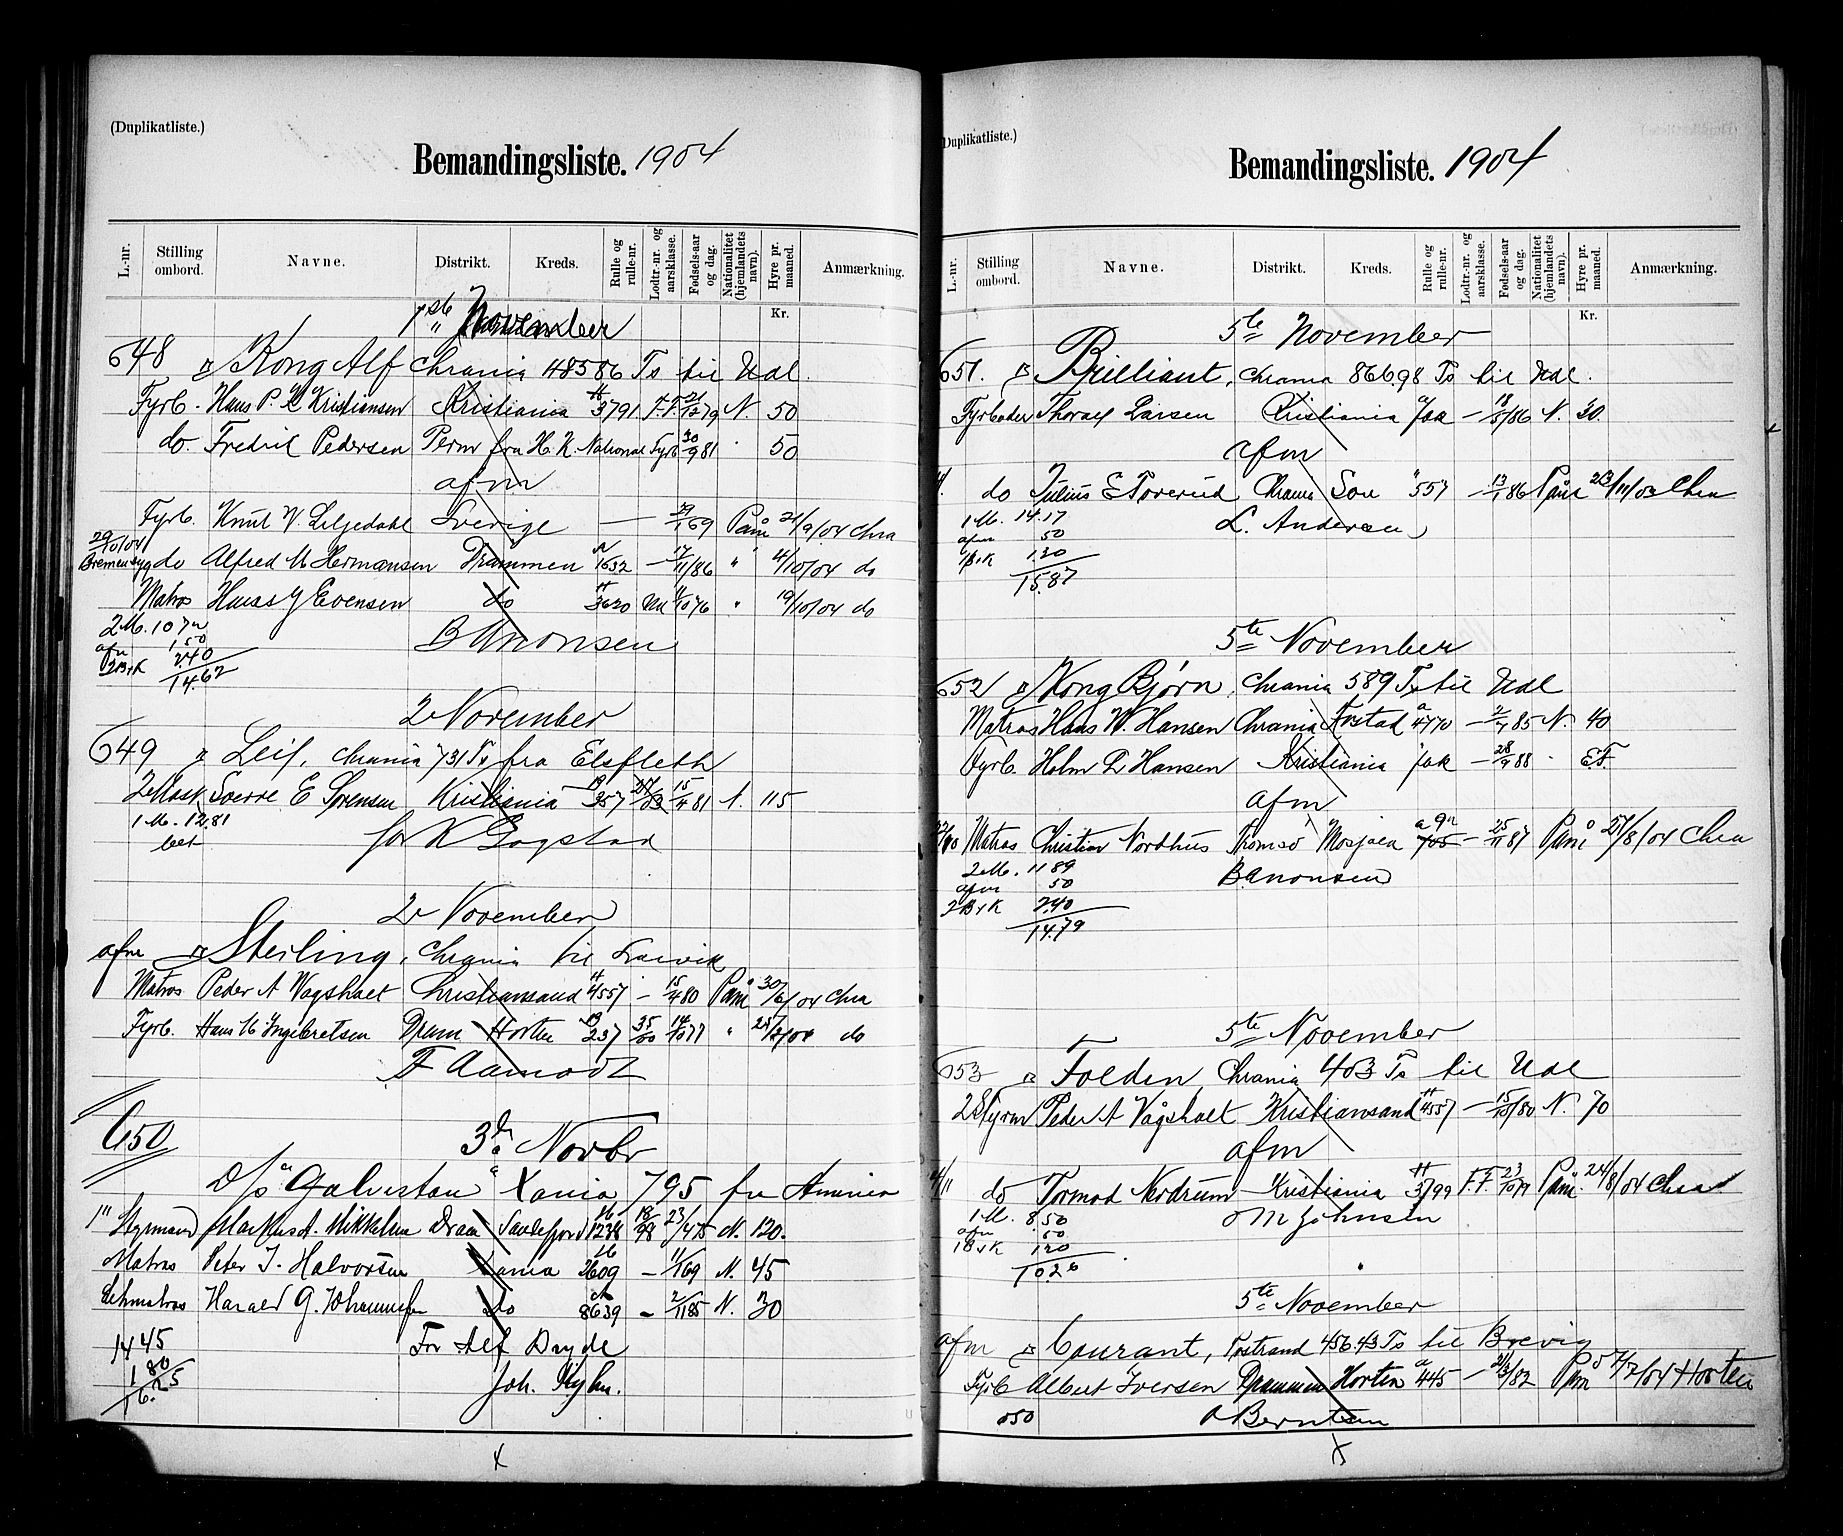 (Duplikatliste.)
Bemandingsliste. 1904
L.-nr. Stilling ombord. Navne. Distrikt. Kreds. Rulle og rulle-nr. Lodtr.-nr. og aarsklasse. Fødsels-aar og dag. Nationalitet (hjemlandets navn). Hyre pr. maaned. Anmærkning.
Kr.
1ste November
648 Kong Alf Chrania 485 86 Ts til Udl.
Fyrb. Hans P. Kristiansen Kristiania 3791 F.F. 21/12 79 N. 50
do. Fredrik Pedersen Perm fra H. K. National Fyrb 30/9 81 " 50
afm
Fyrb. Knut V. Liljedahl Sverige — 29/1 69 Påm 21/9/04 Chra
29/10/04
Bremen syg do Alfred M Hermansen Drammen 1632 — 17/11/86 " 4/10/04 do
Matros Hans J Evensen do 3620 10 76 " 19/10/04 do
2 M. 10 72
afm 1.50
2 B+K 2.40
14.62
B Anonsen
2 November
649 Leif, Chrania 731 Ts fra Elsfleth
2 Mask Sverre E Sørensen Kristiania 357 15/4 81 N. 115
1 M. 12.81
bet
for K Gogstad
2 November
afm Sterling, Chrania til Larvik
Matros Peder A Vagshalt Christiansand 4557 — 15/4 80 Påm 30/6/04 Chra
Fyrb. Hans M Ingebretsen Dram Horten 237 35/00 14/10 77 " 04 do
F Aamodt
650
3de Novbr
D/s "Galveston" Xania 795 fra Amerika
1ste Styrmand Markus A. Mikkelsen Dram Sandefjord 1238 18/98 23/4 75 N. 120.
Matros Peter J. Halvorsen Xania 2609 — 11/1 69 N. 45
Letmatros Harald G. Johannesen Do 8639 — 2/11 85 N. 30
14 45
1 80
16.25
For Alf
Joh.
x
(Duplikatliste.)
Bemandingsliste. 1904
L.-nr. Stilling ombord. Navne. Distrikt. Kreds. Rulle og rulle-nr. Lodtr.-nr. og aarsklasse. Fødsels-aar og dag. Nationalitet (hjemlandets navn). Hyre pr. maaned. Anmærkning.
Kr.
5te November
651. Brilliant, Chrania 866,98 Ts til Udl.
Fyrbøder Thoralf Larsen Kristiania — 18/5/86 N. 30.
afm
do Julius E Toverud Chrania Son 557 — 13/1 86 Påm 23/11/03 Chra
1 M. 14.17
afm 50
1 B+K 1.20
15.87
L. Andersen
5te November
652 Kong Bjørn, Chrania 589 Ts til Udl
Matros Hans W. Hansen Chrania Frstad 4770 — 2/7 85 N. 40
Fyrb. Holm L Hansen Kristiania — 28/7 88 " E.F.
afm
Matros Christian Nordhus Tromsø Mosjøen 705 — 25/11 87 Påm 27/8/04 Chra
2 M. 11 89
afm 50
2 B+K 2.40
14.79
B Anonsen
5te November
653 Folden, Chrania 403 Ts til Udl
2 Styrm Peder A Vågshalt Kristiansand 4557 — 15/ /80 N. 70
afm
4/11 do Tormod Nordrum Kristiania 3799 F.F. 23/10 79 Påm 24/8/04 Chra
1 M. 8.50
afm .50
1 B+K 1.20
10.20
M Johnsen
5te November
afm Courant, Porsgrund 456.43 Ts til Brevig
Fyrb Albert Iversen Drammen Horten 445 — 2/3/82 Påm 04 Horten
050
O Berntsen
x